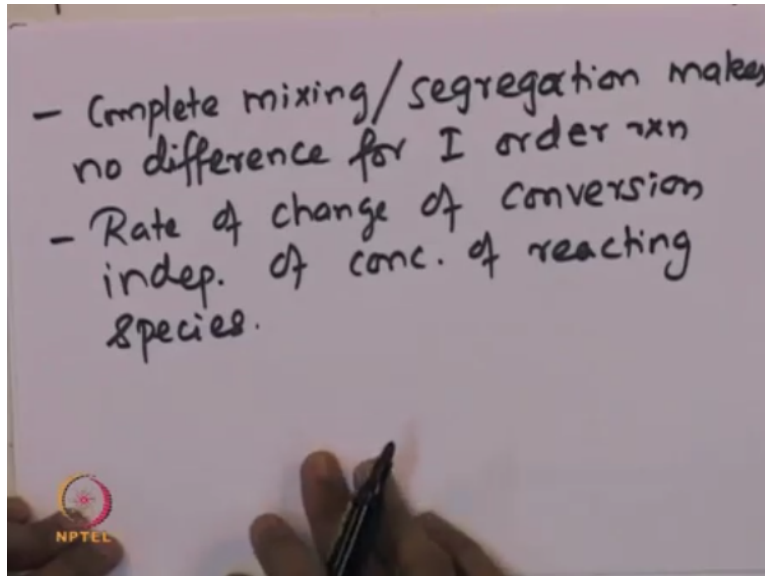 - Complete mixing/segregation makes
no difference for I order rxn
- Rate of change of conversion
indep. of conc. of reacting
species.
NPTEL